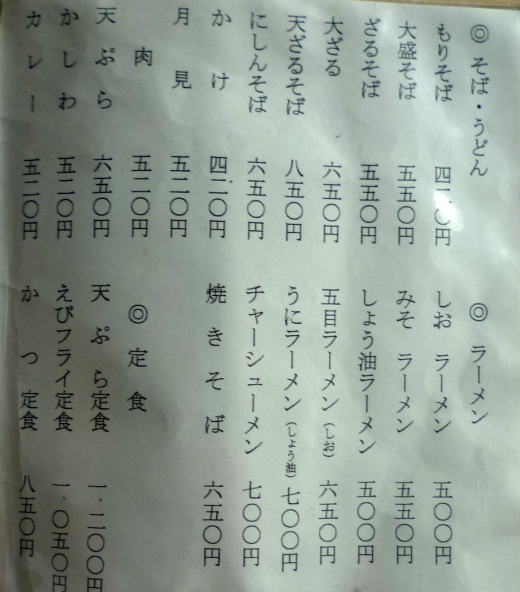 ◎ そば・うどん
もりそば 四二〇円
大盛そば 五五〇円
ざるそば 五五〇円
大ざる 六五〇円
天ざるそば 八五〇円
にしんそば 六五〇円
かけ 四二〇円
月見 五二〇円
肉 五二〇円
天ぷら 六五〇円
かしわ 五二〇円
カレー 五二〇円
◎ ラーメン
しお ラーメン 五〇〇円
みそ ラーメン 五五〇円
しょう油ラーメン 五〇〇円
五目ラーメン(しお) 六五〇円
うにラーメン(しょう油) 七〇〇円
チャーシューメン 七〇〇円
焼きそば 六五〇円
◎ 定食
天ぷら定食 一.二〇〇円
えびフライ定食 一.〇五〇円
かつ定食 八五〇円